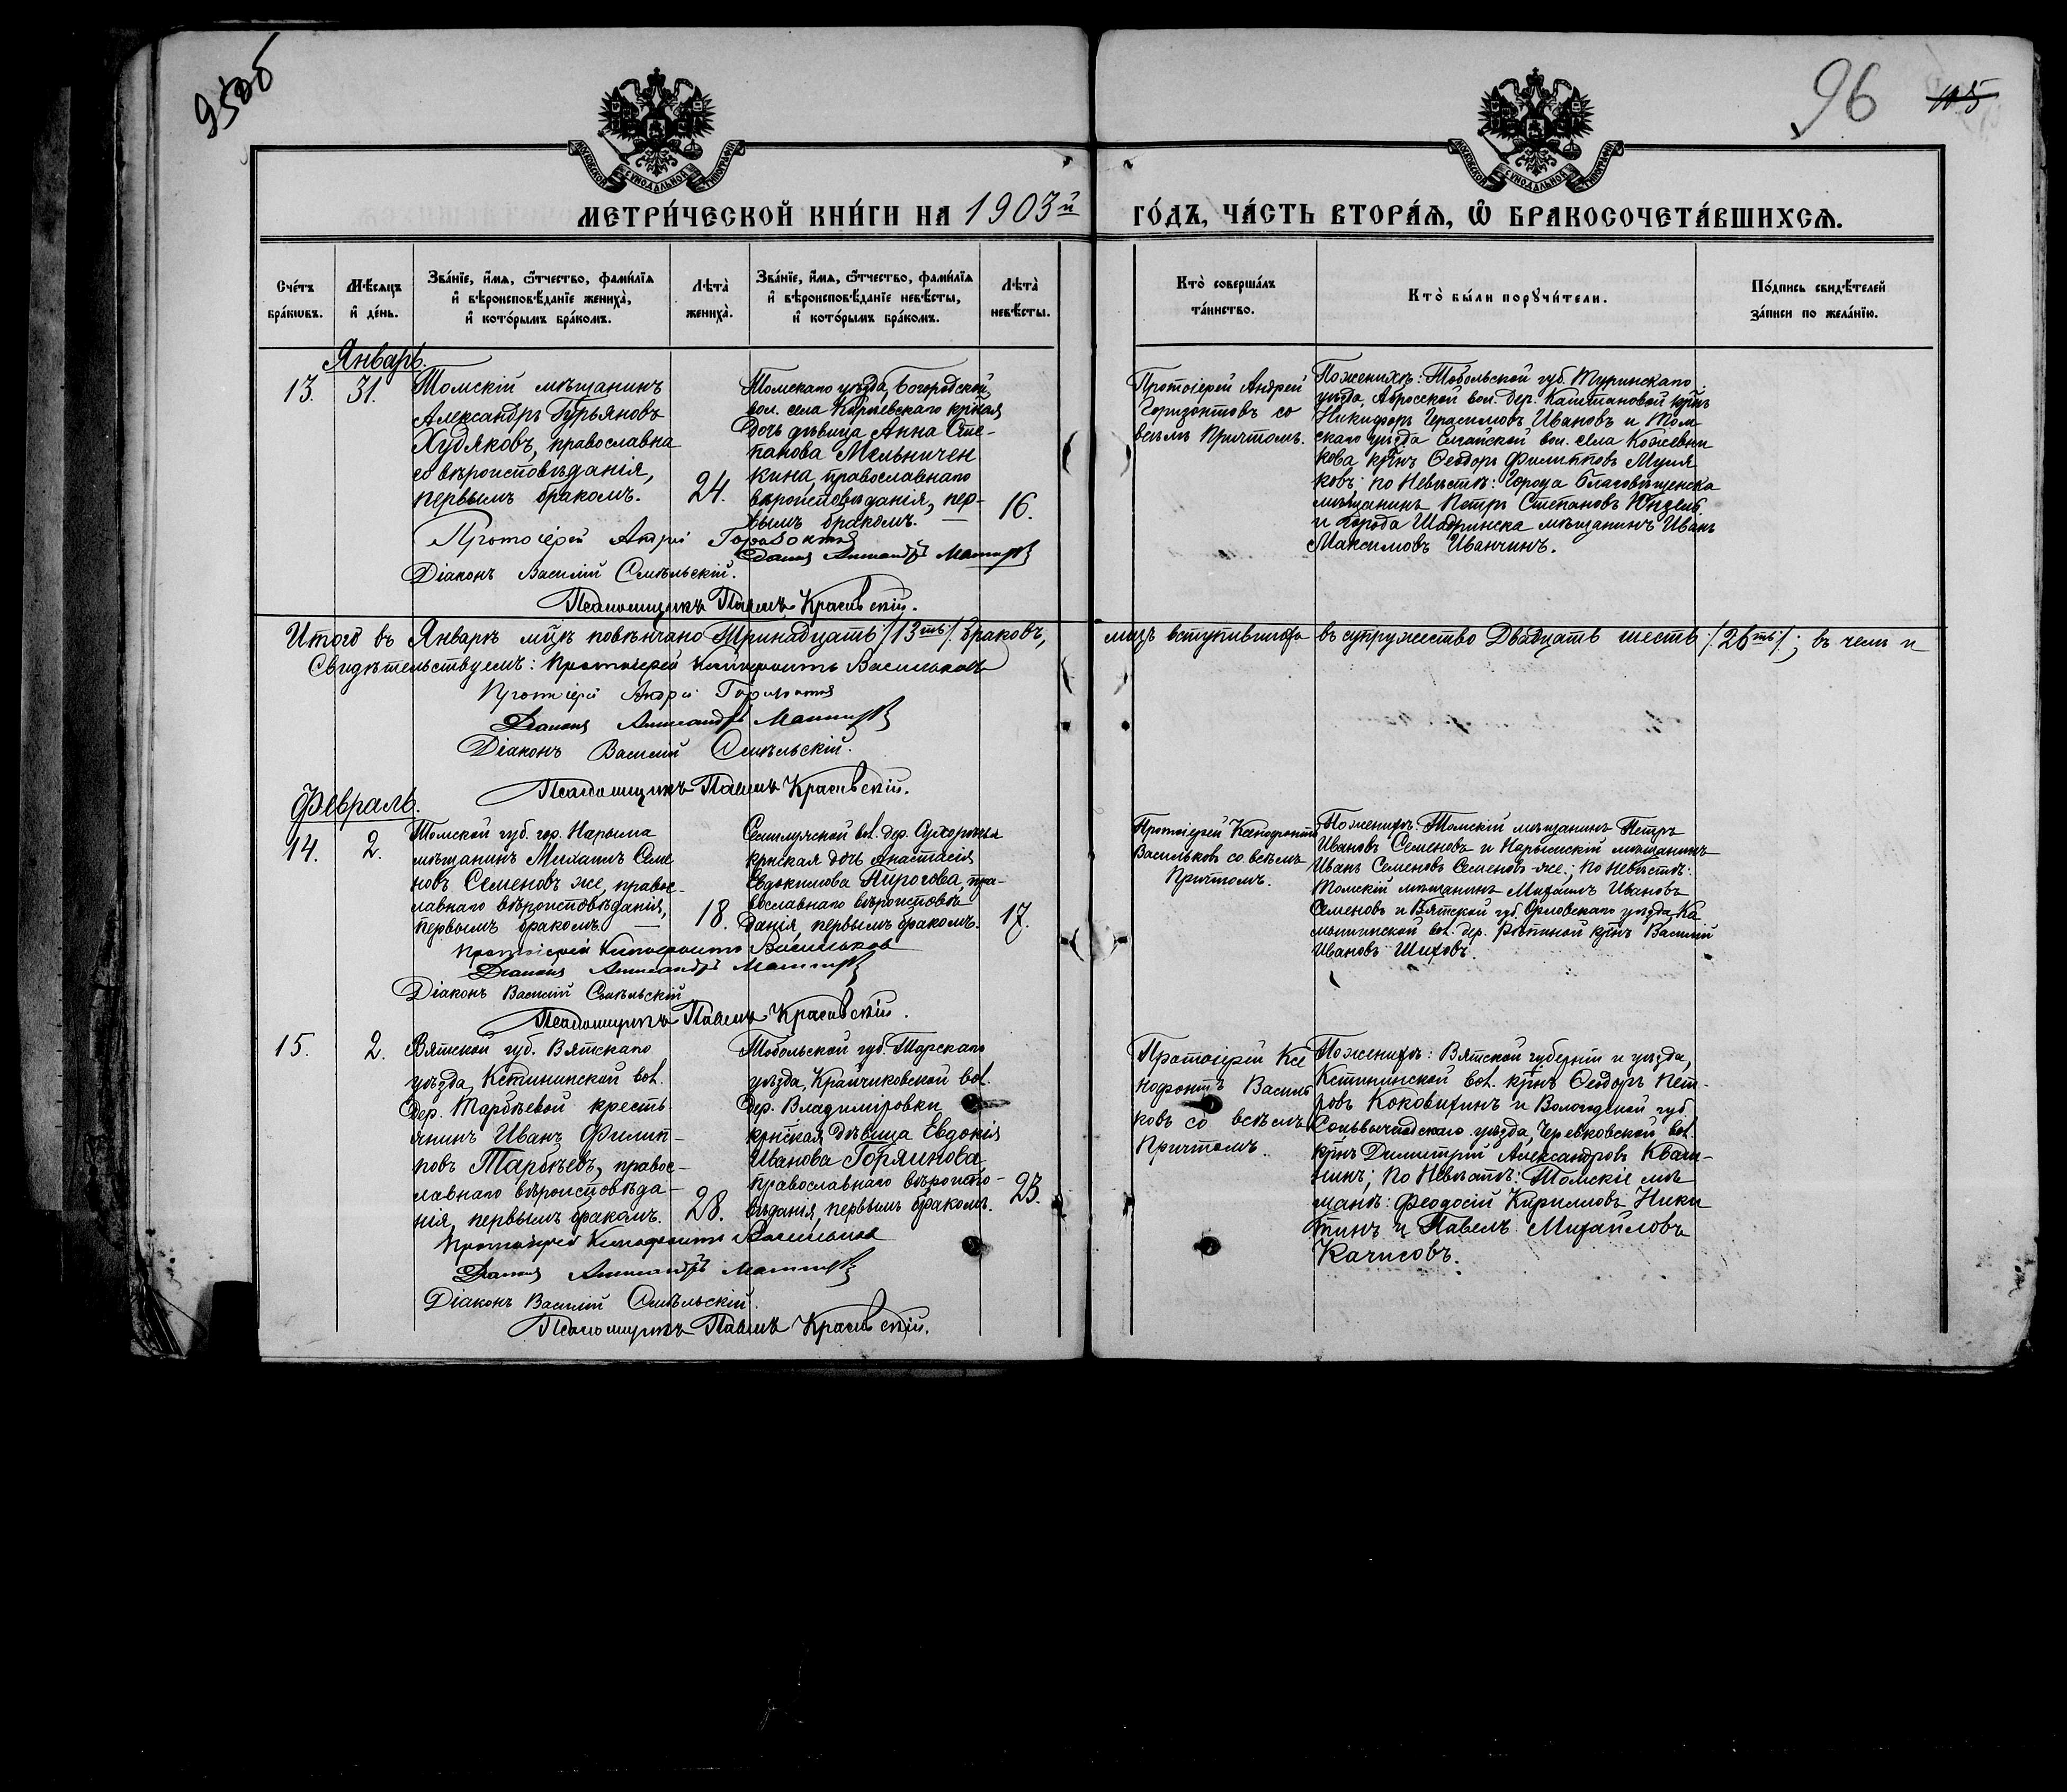 95об
96
105
МОСКОВСКОЙ СѴНОДАЛЬНОЙ ТИПОГРАФІИ
МОСКОВСКОЙ СѴНОДАЛЬНОЙ ТИПОГРАФІИ
МЕТРИ́ЧЕСКОЙ КНИ́ГИ НА 1903й ГО́ДЪ, ЧА́СТЬ ВТОРА́Ѧ, Ѽ БРАКОСОЧЕТА́ВШИХСѦ.
Сче́тъ
бра́кѡвъ.
Мѣ́сяцъ
и҆ де́нь.
Зва́нїе, и҆́мѧ, ѻ҆́тчество, фами́лїѧ
и҆ вѣроисповѣ́данїе жениха̀,
и҆ кото́рымъ бра́комъ.
Лѣ́та̀
жениха̀.
Зва́нїе, и҆́мѧ, ѻ҆́тчество, фами́лїѧ
и҆ вѣроисповѣ́данїе невѣ́сты,
и҆ кото́рымъ бра́комъ.
Лѣ́та̀
невѣ́сты.
Кто̀ соверша́лъ
та́инство.
Кто̀ бы́ли порꙋчи́тели.
По́дпись свидѣ́телей
за́писи по жела́нїю.
Январь.
13.
31.
Томскій мѣщанинъ
Александръ Гурьяновъ
Худяковъ, православна
го вѣроисповѣданія,
первымъ бракомъ.
24.
Томскаго уѣзда, Богородской
вол. села Киреевскаго крнская
дочь дѣвица Анна Сте-
панова Мельничен
кина, православнаго
вѣроисповѣданія, пер-
вымъ бракомъ. —
16.
Протоіерей Андрей
Горизонтовъ со
всѣмъ Причтомъ.
По женихѣ: Тобольской губ. Туринскаго
уѣзда, Кашмановой крнъ
Никифоръ Герасимовъ Ивановъ и Том
скаго уѣзда Елгайской вол. села Кожевни
кова крнъ Ѳеодоръ Филипповъ Муля
ковъ; по Невѣстѣ: города Благовѣщенска
мѣщанинъ Петръ Степановъ
и города Шадринска мѣщанинъ Иванъ
Максимовъ Иванчинъ.
Протоіерей Андрей Горизонтов
Діакон Александръ
Діаконъ Василій Смѣльскій.
Псаломщикъ Павелъ Красивскій.
Итого въ Январѣ мцѣ повѣнчано Тринадцать /:13ть:/ браковъ, лицъ вступившихъ въ супружество Двадцать шесть /:26ть:/; въ чемъ и
Свидѣтельствуемъ: Протоіерей Ксенофонтъ Васильковъ
Протоіерей Андрей Горизонтов
Діакон Александръ
Діаконъ Василій Смѣльскій.
Псаломщикъ Павелъ Красивскій.
Февраль.
14.
2.
Томской губ. гор. Нарыма
мѣщанинъ Михаилъ Семе
новъ Семеновъ же, правос-
лавнаго вѣроисповѣданія,
первымъ бракомъ. —
18.
Семилужской вол. дер. Сухоречья
крнская дочь Анастасія
Евдокимова Пирогова, пра-
вославнаго вѣроисповѣ
данія, первымъ бракомъ.
17.
Протоіерей Ксенофонтъ
Васильковъ со всѣмъ
Причтомъ.
По женихѣ: Томскій мѣщанинъ Петръ
Ивановъ Семеновъ и Нарымскій мѣщанинъ
Иванъ Семеновъ Семеновъ-же; по Невѣстѣ:
Томскій мѣщанинъ Михаилъ Ивановъ
Семеновъ и Вятской губ. Орловскаго уѣзда, Ка
вол. дер. Рѣпиной крнъ Василій
Ивановъ Шиховъ.
Протоіерей Ксенофонтъ Васильковъ
Діакон Александръ
Діаконъ Василій Смѣльскій
Псаломщикъ Павелъ Красивскій.
15.
2.
Вятской губ. Вятскаго
уѣзда, Кстининской вол.
дер. Тарбѣевой кресть
янинъ Иванъ Филип-
повъ Тарбѣевъ, правос-
лавнаго вѣроисповѣда-
нія, первымъ бракомъ.
28.
Тобольской губ. Тарскаго
уѣзда, Крайчиковской вол.
дер. Владиміровки
крнская дѣвица Евдокія
Иванова Горяинова
православнаго вѣроиспо-
вѣданія, первымъ бракомъ.
23.
Протоіерей Ксе
нофонтъ Василь
ковъ со всѣмъ
Причтомъ.
По женихѣ: Вятской губерніи и уѣзда,
Кстининской вол. крнъ Ѳеодоръ Пет-
ровъ Коковихинъ и Вологодской губ.
Сольвычегодскаго уѣзда, Черевковской вол.
крнъ Димитрій Александровъ Кваш-
нинъ; по Невѣстѣ: Томскіе мѣ
щане: Феодосій Кирилловъ Ники
тинъ и Павелъ Михайловъ
Качисовъ.
Протоіерей Ксенофонтъ Васильковъ
Діакон Александръ
Діаконъ Василій Смѣльскій.
Псаломщикъ Павелъ Красивскій.